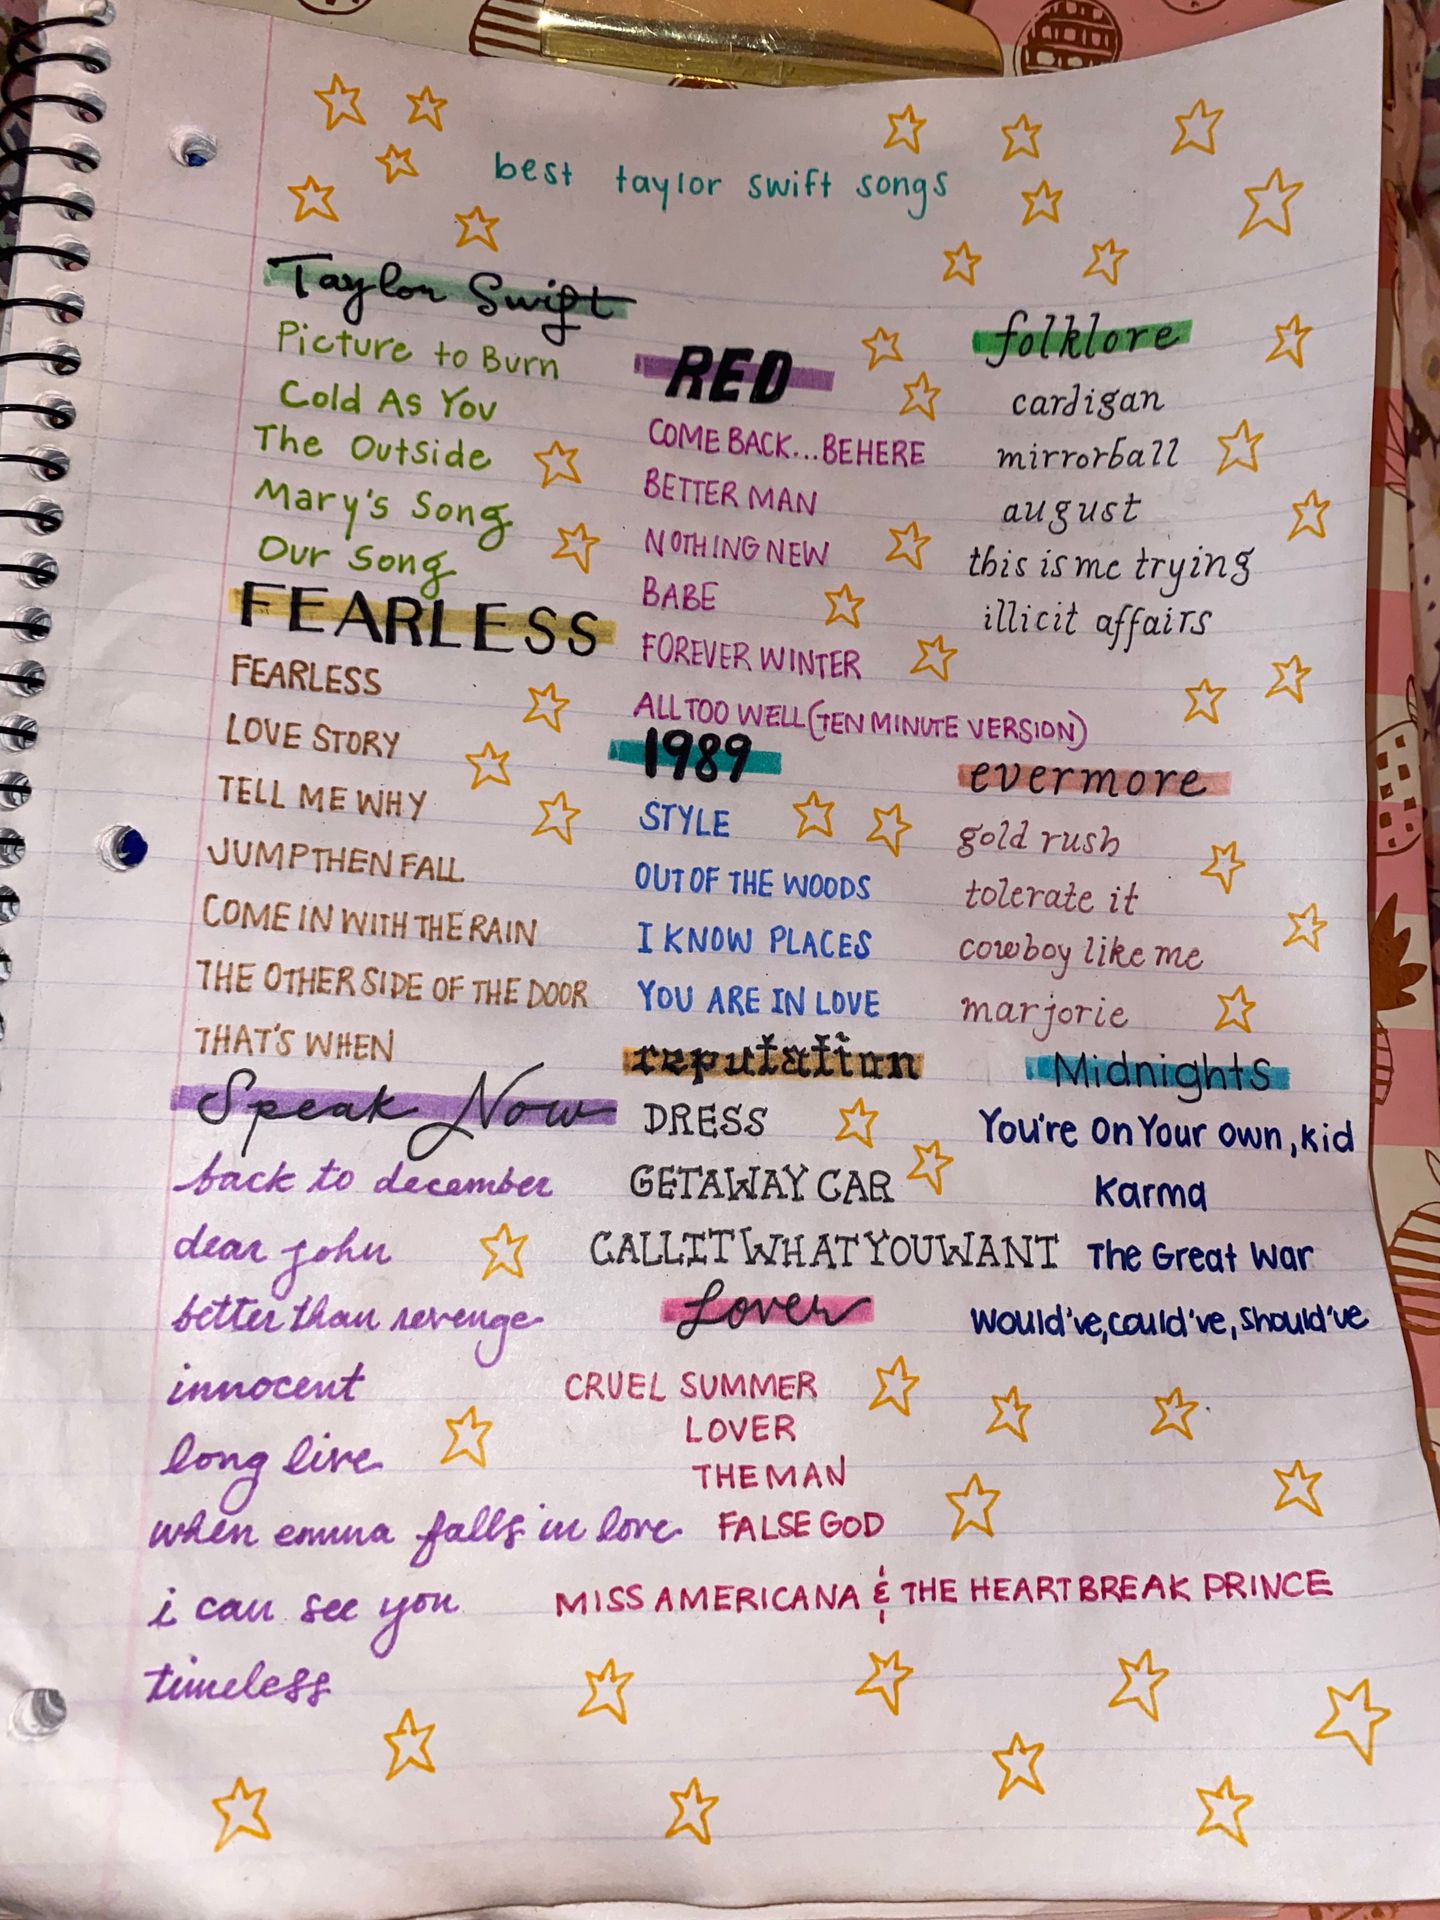 best taylor swift songs
Taylor Swift
Picture to Burn
Cold As You
The Outside
Mary's Song
Our Song
FEARLESS
FEARLESS
LOVE STORY
TELL ME WHY
JUMP THEN FALL
COME IN WITH THE RAIN
THE OTHER SIDE OF THE DOOR
THAT'S WHEN
Speak Now
back to december
dear john
better than revenge
innocent
long live
when emma falls in love
i can see you
timeless
RED
COME BACK...BE HERE
BETTER MAN
NOTHING NEW
BABE
FOREVER WINTER
ALL TOO WELL (TEN MINUTE VERSION)
1989
STYLE
OUT OF THE WOODS
I KNOW PLACES
YOU ARE IN LOVE
reputation
DRESS
GETAWAY CAR
CALL IT WHAT YOU WANT
Lover
CRUEL SUMMER
LOVER
THE MAN
FALSE GOD
MISS AMERICANA & THE HEARTBREAK PRINCE
folklore
cardigan
mirrorball
august
this is me trying
illicit affairs
evermore
gold rush
tolerate it
cowboy like me
marjorie
Midnights
You're On Your Own, Kid
Karma
The Great War
Would've, Could've, Should've